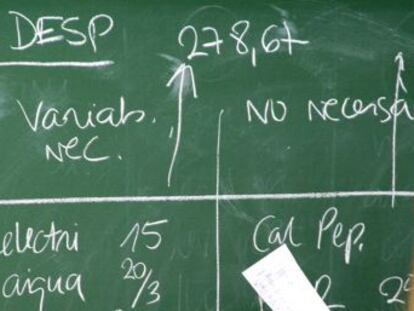 DESP 278,67
Variab. No necesa
nec.
electri 15 Cal Pep.
aigua 20/3